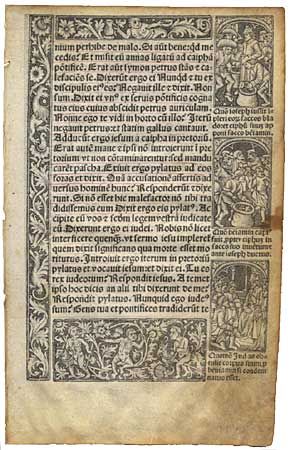 nium perhibe de malo. Si aūt bene: qd me
cedis? Et misit eū annas ligatū ad caiphā
pontificē. Erat aūt symon petrus stās & ca
lefaciēs se. Dixerūt ergo ei Nunqd & tu ex
discipulis ei⁹ es? Negauit ille & dixit. Non
sum. Dixit ei vn⁹ ex seruis pontificis cogna
tus eius cuius abscidit petrus auriculam.
Nonne ego te vidi in horto cū illo? Iterū
negauit petrus: & statim gallus cantauit.
Adducūt ergo iesum a caipha in pretoriū.
Erat autem mane & ipsi nō introierunt i pre
toriū vt non cōtaminarentur sed mandu
carēt pascha. Exiuit ergo pylatus ad eos
foras et dixit. Quā accusationē affertis ad
uersus hominē hunc? Responderūt & dixe
runt. Si nō esset hic malefactor nō tibi tra
didissemus eum Dixit ergo eis pylat⁹. Ac
cipite eū vos & scdm legem vestrā iudicate
eū Dixerunt ergo ei iudei. Nobis nō licet
interficere quenq̄. vt sermo iesu impleret
quem dixit significans qua morte esset mo
riturus. Introiuit ergo iterum in pretoriū
pylatus et vocauit iesum: et dixit ei. Tu es
rex iudeorum? Respondit iesus. A temet
ipso hoc dicis an alii tibi dixerunt de me?
Respondit pylatus. Nunquid ego iudeus
sum? Gens tua et pontifices tradiderūt te
Quō ioseph iussit
poni sacco beiamin.
in sacco suo
ante ioseph
Quomō Jud